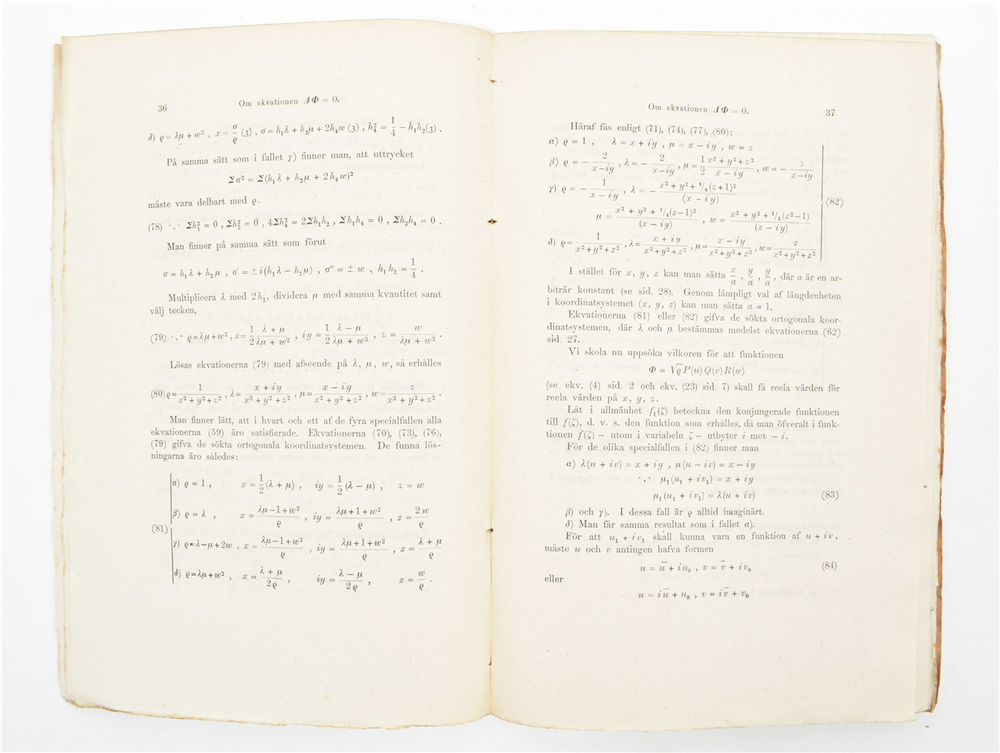 36
Om ekvationen ΔΦ = 0.
δ) ϱ = λμ + w² , x = σ/ϱ (3) , σ = h₁λ + h₂μ + 2h₄w (3) , h₄² = 1/4 − h₁h₂(3) .
På samma sätt som i fallet γ) finner man, att uttrycket
Σσ² = Σ(h₁λ + h₂μ + 2h₄w)²
måste vara delbart med ϱ.
(78) ·.· Σh₁² = 0 , Σh₂² = 0 , 4Σh₄² = 2Σh₁h₂ , Σh₁h₄ = 0 , Σh₂h₄ = 0 .
Man finner på samma sätt som förut
σ = h₁λ + h₂μ , σ' = ± i(h₁λ − h₂μ) , σ'' = ± w , h₁h₂ = 1/4 .
Multiplicera λ med 2h₂, dividera μ med samma kvantitet samt
välj tecken,
(79) ·.· ϱ = λμ + w² , x = 1/2 (λ + μ)/(λμ + w²) , iy = 1/2 (λ − μ)/(λμ + w²) , z = w/(λμ + w²) .
Lösas ekvationerna (79) med afseende på λ, μ, w, så erhålles
(80) ϱ = 1/(x² + y² + z²) , λ = (x + iy)/(x² + y² + z²) , μ = (x − iy)/(x² + y² + z²) , w = z/(x² + y² + z²) .
Man finner lätt, att i hvart och ett af de fyra specialfallen alla
ekvationerna (59) äro satisfierade. Ekvationerna (70), (73), (76),
(79) gifva de sökta ortogonala koordinatsystemen. De funna lös-
ningarna äro således:
α) ϱ = 1 , x = 1/2 (λ + μ) , iy = 1/2 (λ − μ) , z = w
β) ϱ = λ , x = (λμ − 1 + w²)/ϱ , iy = (λμ + 1 + w²)/ϱ , z = 2w/ϱ
(81)
γ) ϱ = λ − μ + 2w , x = (λμ − 1 + w²)/ϱ , iy = (λμ + 1 + w²)/ϱ , z = (λ + μ)/ϱ
δ) ϱ = λμ + w² , x = (λ + μ)/2ϱ , iy = (λ − μ)/2ϱ , z = w/ϱ .
Om ekvationen ΔΦ = 0.
37
Häraf fås enligt (71), (74), (77), (80):
α) ϱ = 1 , λ = x + iy , μ = x − iy , w = z
β) ϱ = − 2/(x − iy) , λ = − 2/(x − iy) , μ = 1/2 (x² + y² + z²)/(x − iy) , w = − z/(x − iy)
γ) ϱ = − 1/(x − iy) , λ = − (x² + y² + ¹/₄(z + 1)²)/(x − iy)
(82)
μ = (x² + y² + ¹/₄(z − 1)²)/(x − iy) , w = (x² + y² + ¹/₄(z² − 1))/(x − iy)
δ) ϱ = 1/(x² + y² + z²) , λ = (x + iy)/(x² + y² + z²) , μ = (x − iy)/(x² + y² + z²) , w = z/(x² + y² + z²)
I stället för x, y, z kan man sätta x/a , y/a , y/a , där a är en ar-
biträr konstant (se sid. 28). Genom lämpligt val af längdenheten
i koordinatsystemet (x, y, z) kan man sätta a = 1.
Ekvationerna (81) eller (82) gifva de sökta ortogonala koor-
dinatsystemen, där λ och μ bestämmas medelst ekvationerna (62)
sid. 27.
Vi skola nu uppsöka vilkoren för att funktionen
Φ = √ϱ P(u) Q(v) R(w)
(se ekv. (4) sid. 2 och ekv. (23) sid. 7) skall få reela värden för
reela värden på x, y, z.
Låt i allmänhet f₁(ζ) beteckna den konjungerade funktionen
till f(ζ), d. v. s. den funktion som erhålles, då man öfverallt i funk-
tionen f(ζ) − utom i variabeln ζ − utbyter i mot − i.
För de olika specialfallen i (82) finner man
α) λ(u + iv) = x + iy , μ(u − iv) = x − iy
·.· μ₁(u₁ + iv₁) = x + iy
μ₁(u₁ + iv₁) = λ(u + iv) (83)
β) och γ). I dessa fall är ϱ alltid imaginärt.
δ) Man får samma resultat som i fallet α).
För att u₁ + iv₁ skall kunna vara en funktion af u + iv,
måste u och v antingen hafva formen
u = ū + iu₀ , v = v̄ + iv₀ (84)
eller
u = iū + u₀ , v = iv̄ + v₀